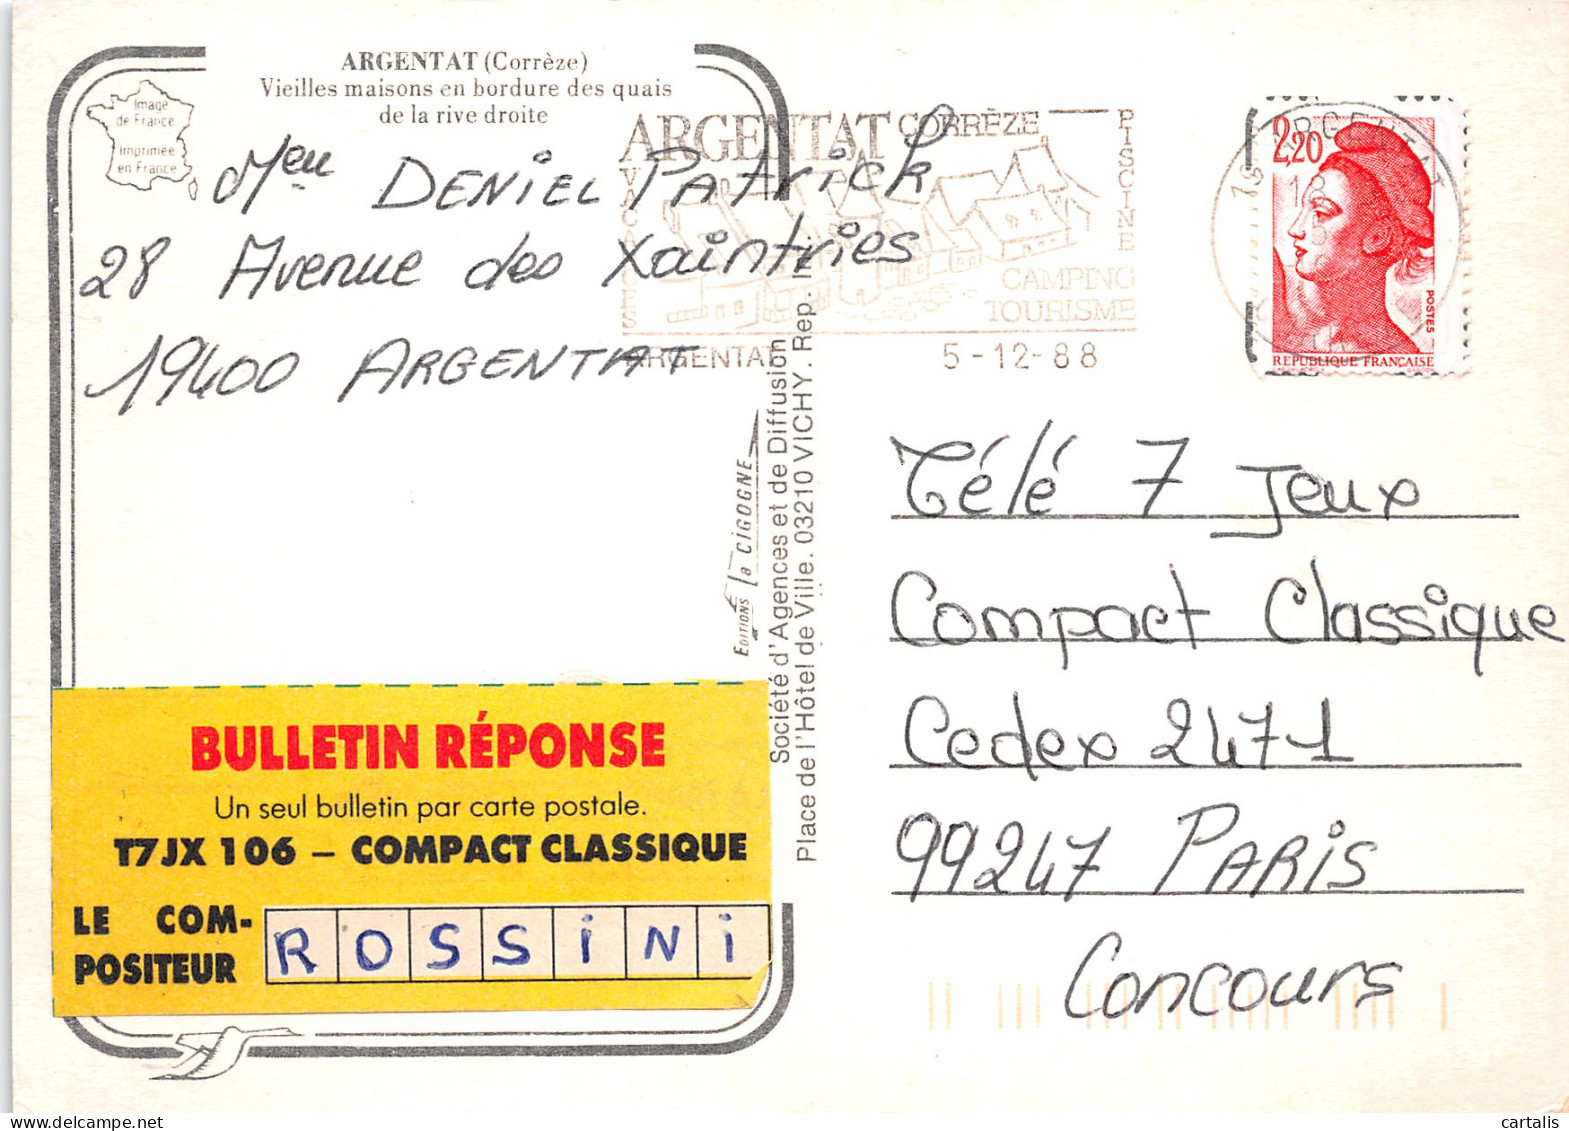 ARGENTAT (Corrèze)
Vieilles maisons en bordure des quais
de la rive droite
Image
de France
Imprimée
en France
DENIEL Patrick
28 Avenue des Xaintries
19400 ARGENTAT
ARGENTAT CORRÈZE
VACANCES
PISCINE
CAMPING
TOURISME
ARGENTAT
5-12-88
2,20
POSTES
REPUBLIQUE FRANÇAISE
EDITIONS la CIGOGNE
Société d'Agences et de Diffusion
Place de l'Hôtel de Ville. 03210 VICHY. Rep.
Télé 7 Jeux
Compact Classique
Cedex 2471
99247 PARiS
Concours
BULLETIN RÉPONSE
Un seul bulletin par carte postale.
T7JX 106 – COMPACT CLASSIQUE
LE COM-
POSITEUR
ROSSiNi
cartalis